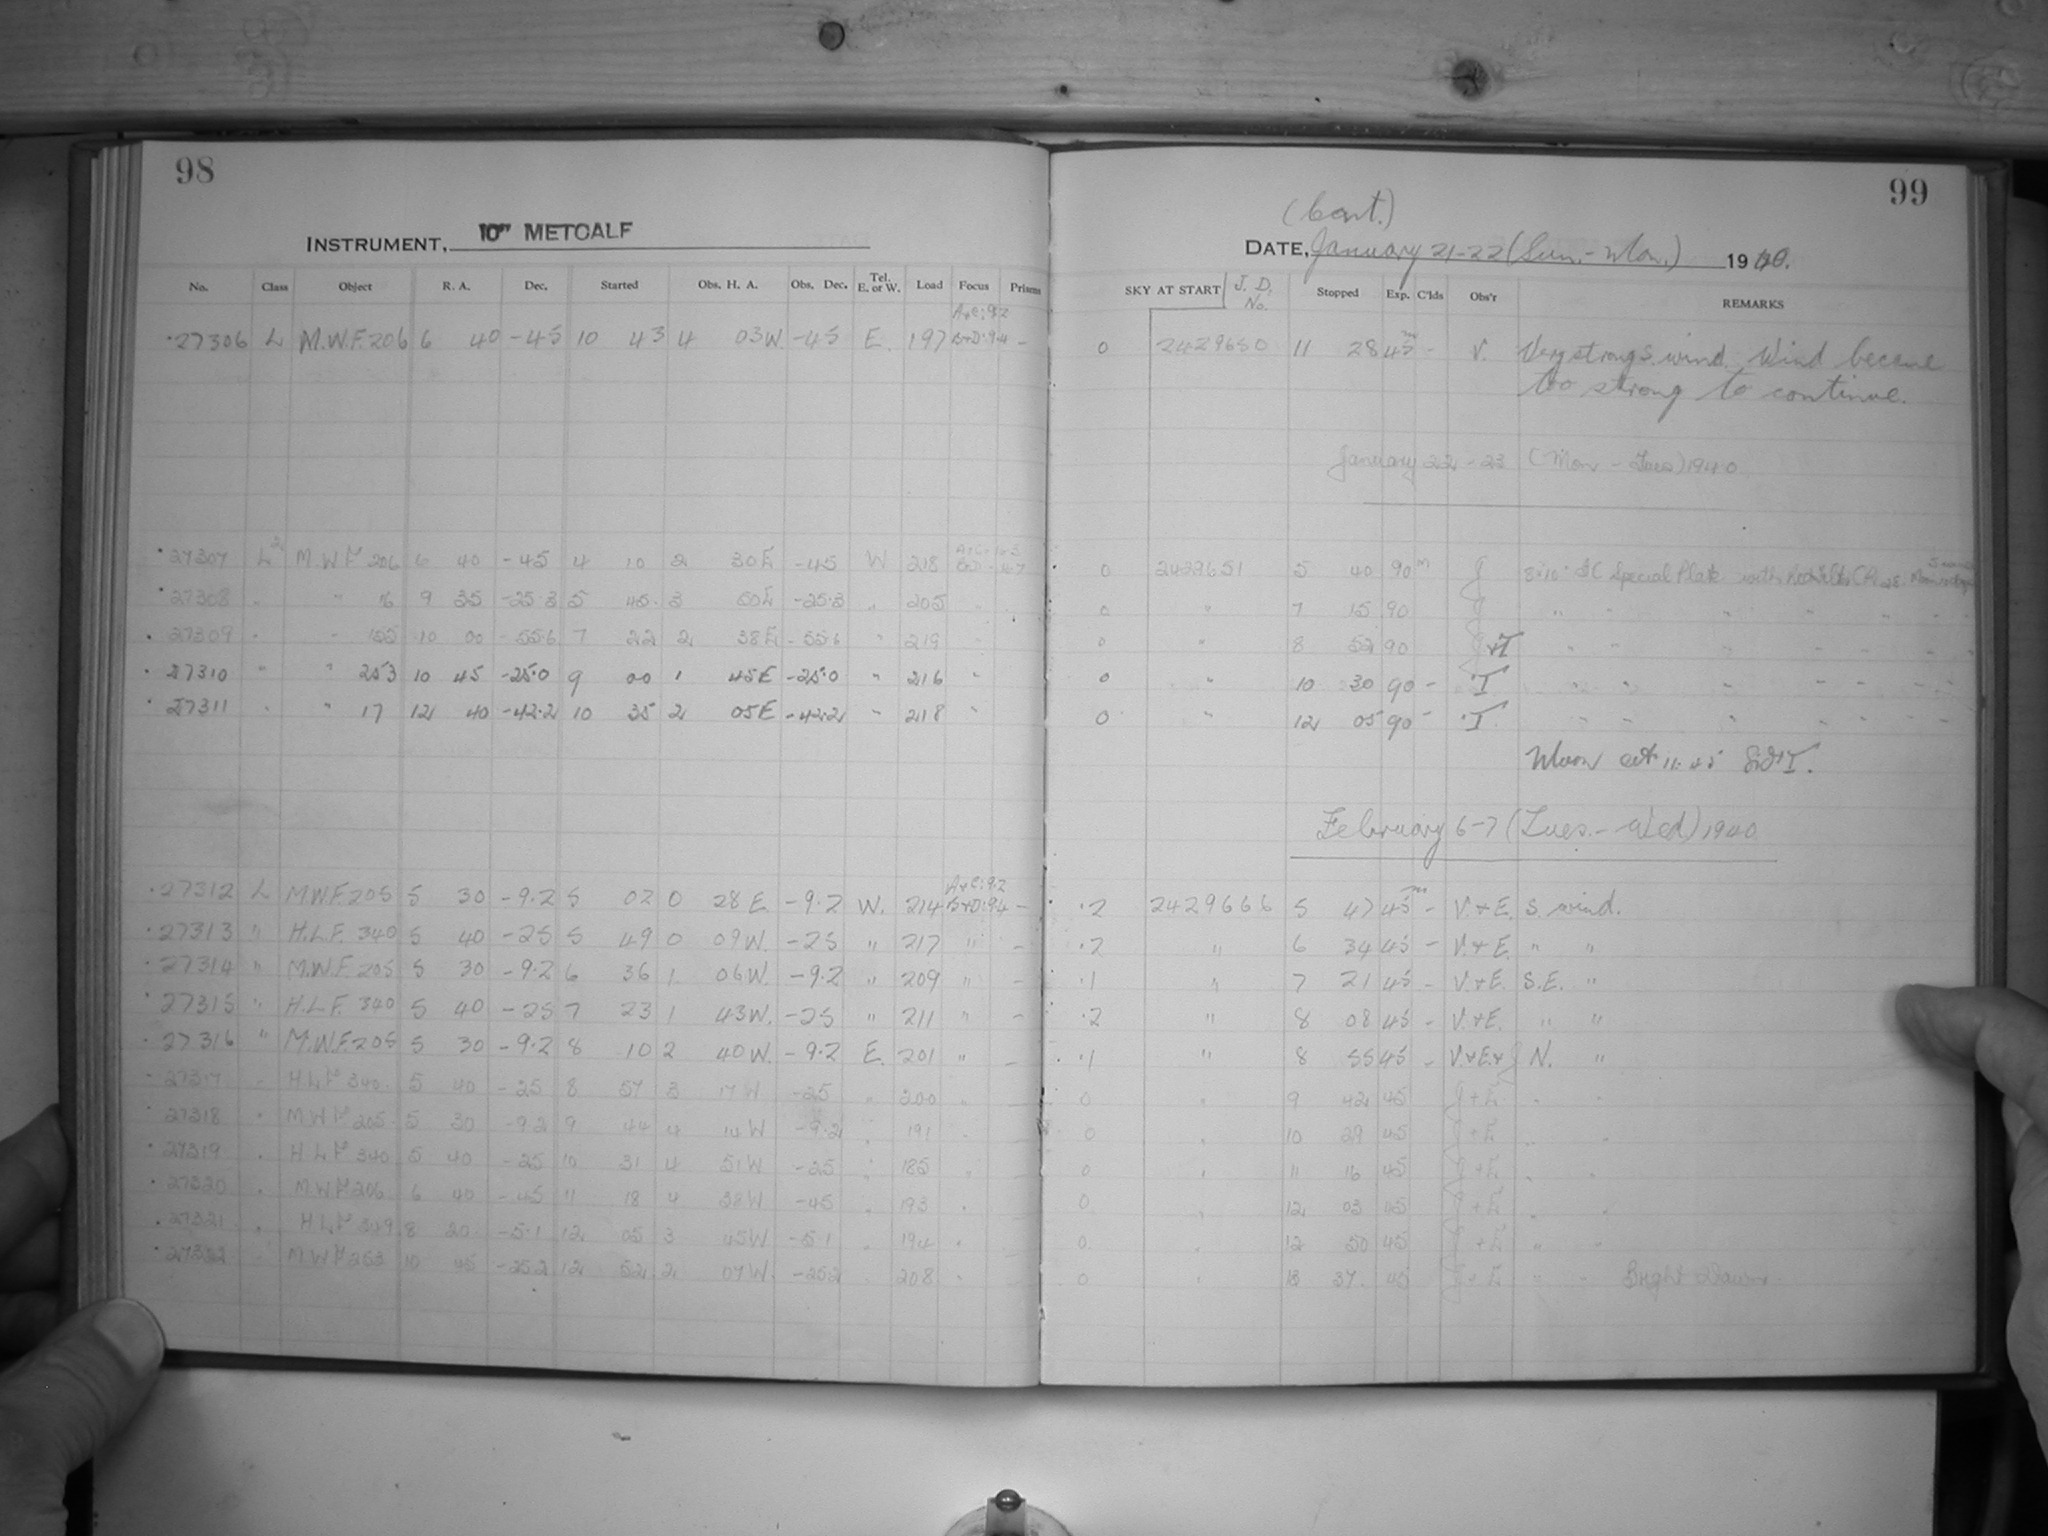 98
INSTRUMENT, 10" METCALF
No. Class Object R. A. Dec. Started Obs. H. A. Obs. Dec. Tel. E. or W. Load Focus Prisms
A+C: 9.2
27306 L M.W.F. 206 6 40 -45 10 43 4 03 W. -45 E. 197 B+D: 9.4 -
27307 L M.W.F 206 6 40 -45 4 10 2 30 E -45 W 218
27308 " 9 35 -25.3 5 45 3 50 E -25.3 " 205
27309 " 155 10 00 -55.6 7 22 2 38 E -55.6 " 219
27310 " " 253 10 45 -25.0 9 00 1 45 E -25.0 " 216 "
27311 " " 17 12 40 -42.2 10 35 2 05 E -42.2 " 218 "
A+C: 9.2
27312 L M.W.F. 205 5 30 -9.2 5 02 0 28 E -9.2 W. 214 B+D: 9.4 -
27313 " H.L.F. 340 5 40 -25 5 49 0 09 W. -25 " 217 " -
27314 " M.W.F. 205 5 30 -9.2 6 36 1 06 W. -9.2 " 209 " -
27315 " H.L.F. 340 5 40 -25 7 23 1 43 W. -25 " 211 " -
27316 " M.W.F. 205 5 30 -9.2 8 10 2 40 W. -9.2 E. 201 " -
27317 " H L F 340 5 40 -25 8 57 3 17 W -25 " 200 "
27318 " M W F 205 5 30 -9.2 9 44 4 14 W -9.2 " 191 "
27319 " H L F 340 5 40 -25 10 31 4 51 W -25 " 185 "
27320 " M.W F 206 6 40 -45 11 18 4 38 W -45 " 193 "
27321 " H L F 349 8 20 -5.1 12 05 3 45 W -5.1 " 194 "
27322 " M W F 253 10 45 -25.2 12 52 2 07 W. -25.2 " 208 "
99
(Cont.)
DATE, January 21-22 (Sun. - Mon.) 1940.
SKY AT START J. D. No. Stopped Exp. C'lds Obs'r REMARKS
0 2429650 11 28 45m - V. Very strong S. wind. Wind became
too strong to continue.
January 22-23 (Mon - Tues) 1940
0 2429651 5 40 90m J 8x10 Special Plate with
0 " 7 15 90 J " "
0 " 8 52 90 J+I " "
0 " 10 30 90 - I " "
0 " 12 05 90 - I " "
Moon 11:45
February 6-7 (Tues. - Wed) 1940
.2 2429666 5 47 45m - V. + E. S. wind.
.2 " 6 34 45 - V. + E. " "
.1 " 7 21 45 - V. + E. S.E. "
.2 " 8 08 45 - V. + E. " "
.1 " 8 55 45 - V. + E + J N. "
0 " 9 42 45 J + E " "
0 " 10 29 45 J + E " "
0 " 11 16 45 J + E " "
0 " 12 03 45 J + E " "
0 " 12 50 45 J + E " "
0 " 13 37 45 J + E " " Bright Dawn